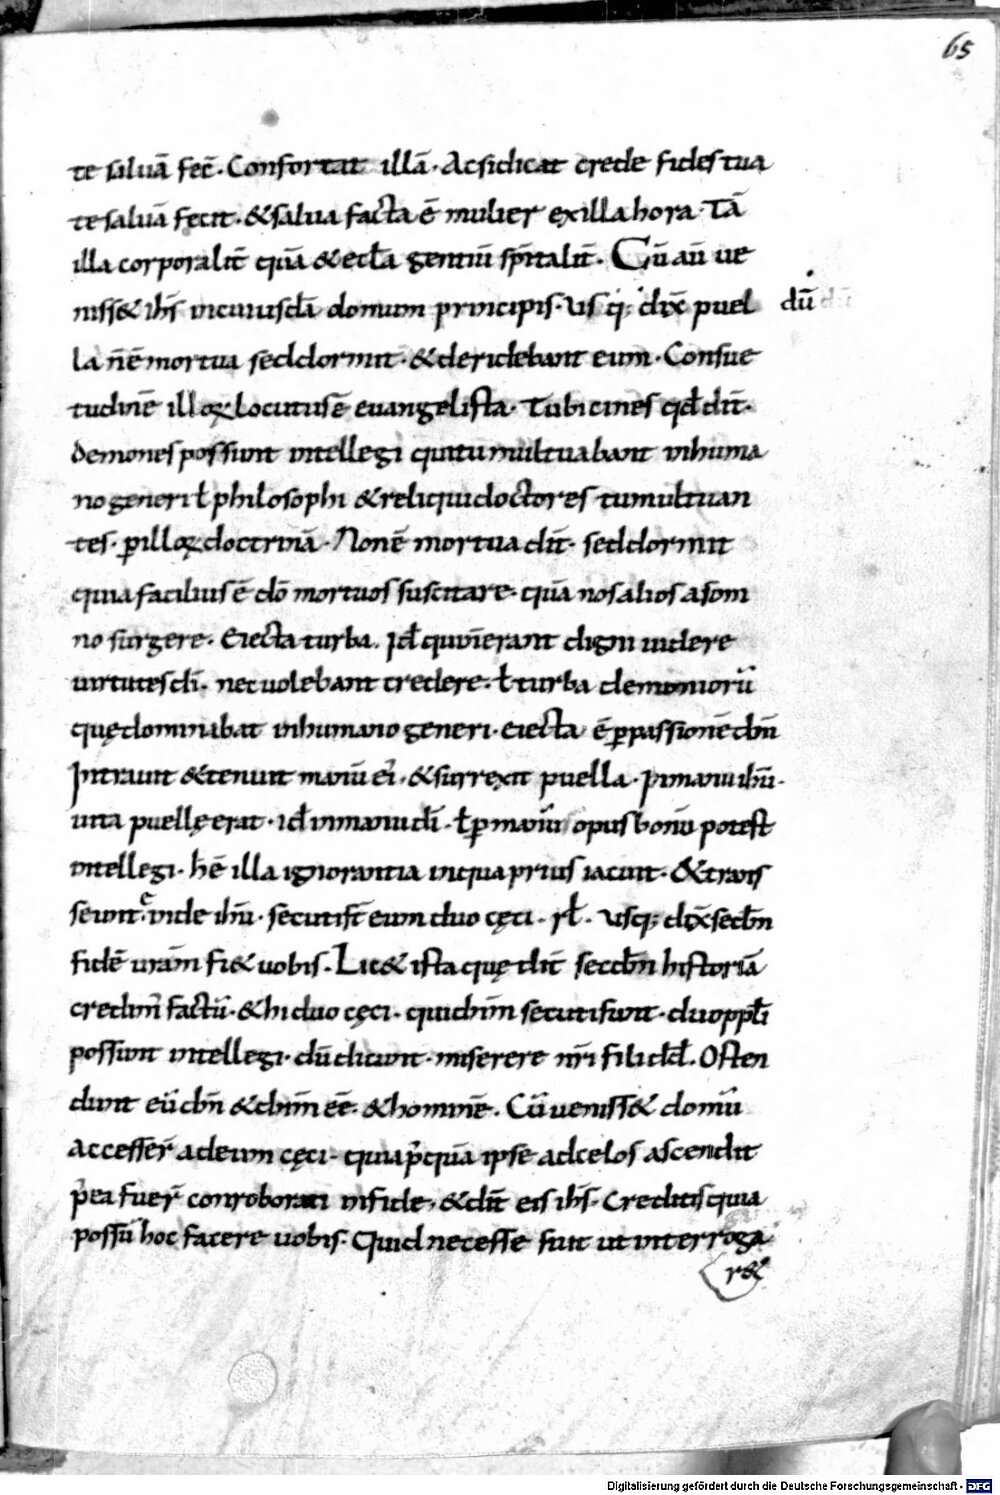 65
te saluā fec̄. Confortat illā. Acsidicat crede fides tua
te saluā fecit. & salua facta ē mulier ex illa hora. Tā
illa corporalit̄ quā & eccl̄a gentiū sp̄italit̄. Cū aū ue
niss& ih̄s incuiusdā domum principis. usq; dix̄ puel dū
la n̄ ē mortua sed dormit. & deridebant eum. Consue
tudinē illoꝝ locutus ē euangelista. Tubicines qd̄ dīt.
demones possunt intellegi qui tumultuabant inhuma
no generi ł philosophi & reliqui doctores tumultuan
tes. ꝑ illoꝝ doctrinā. Non ē mortua dīt. sed dormit
quia facilius ē dō mortuos suscitare. quā nos alios a som
no surgere. Eiecta turba. Id̄ qui n̄ erant digni uidere
uirtutes dī. nec uolebant credere. ł turba demoniorū
quę dominabat inhumano generi. eiecta ē ꝑ passionē dn̄i
Intrauit & tenuit manū eī. & surrexit puella. In manu ih̄u.
uita puellę erat. id̄ in manu dī. ł ꝑ manū opus bonū potest
intellegi. h̄ ē illa ignorantia in qua prius iacuit. & trans
seunt̄e inde ih̄u. secuti st̄ eum duo cęci. rł. usq; dix̄ secd̄m
fidē urām fi& uobis. Lic& ista quę dīt secd̄m historiā
credim̄ factū. & hi duo cęci. qui dn̄m secuti sunt. duo ppłi
possunt intellegi. dū dicunt. miserere nr̄i fili dd̄. Osten
dunt eū dn̄ & dn̄m eē. & hominē. Cū ueniss& domū
Accesser̄ ad eum cęci. quia p̄quā ipse ad celos ascendit
p̄ea fuer̄ conroborati in fide, & dīt eis ih̄s. Creditis quia
possū hoc facere uobis. Quid necesse fuit ut interroga
r&
Digitalisierung gefördert durch die Deutsche Forschungsgemeinschaft - DFG